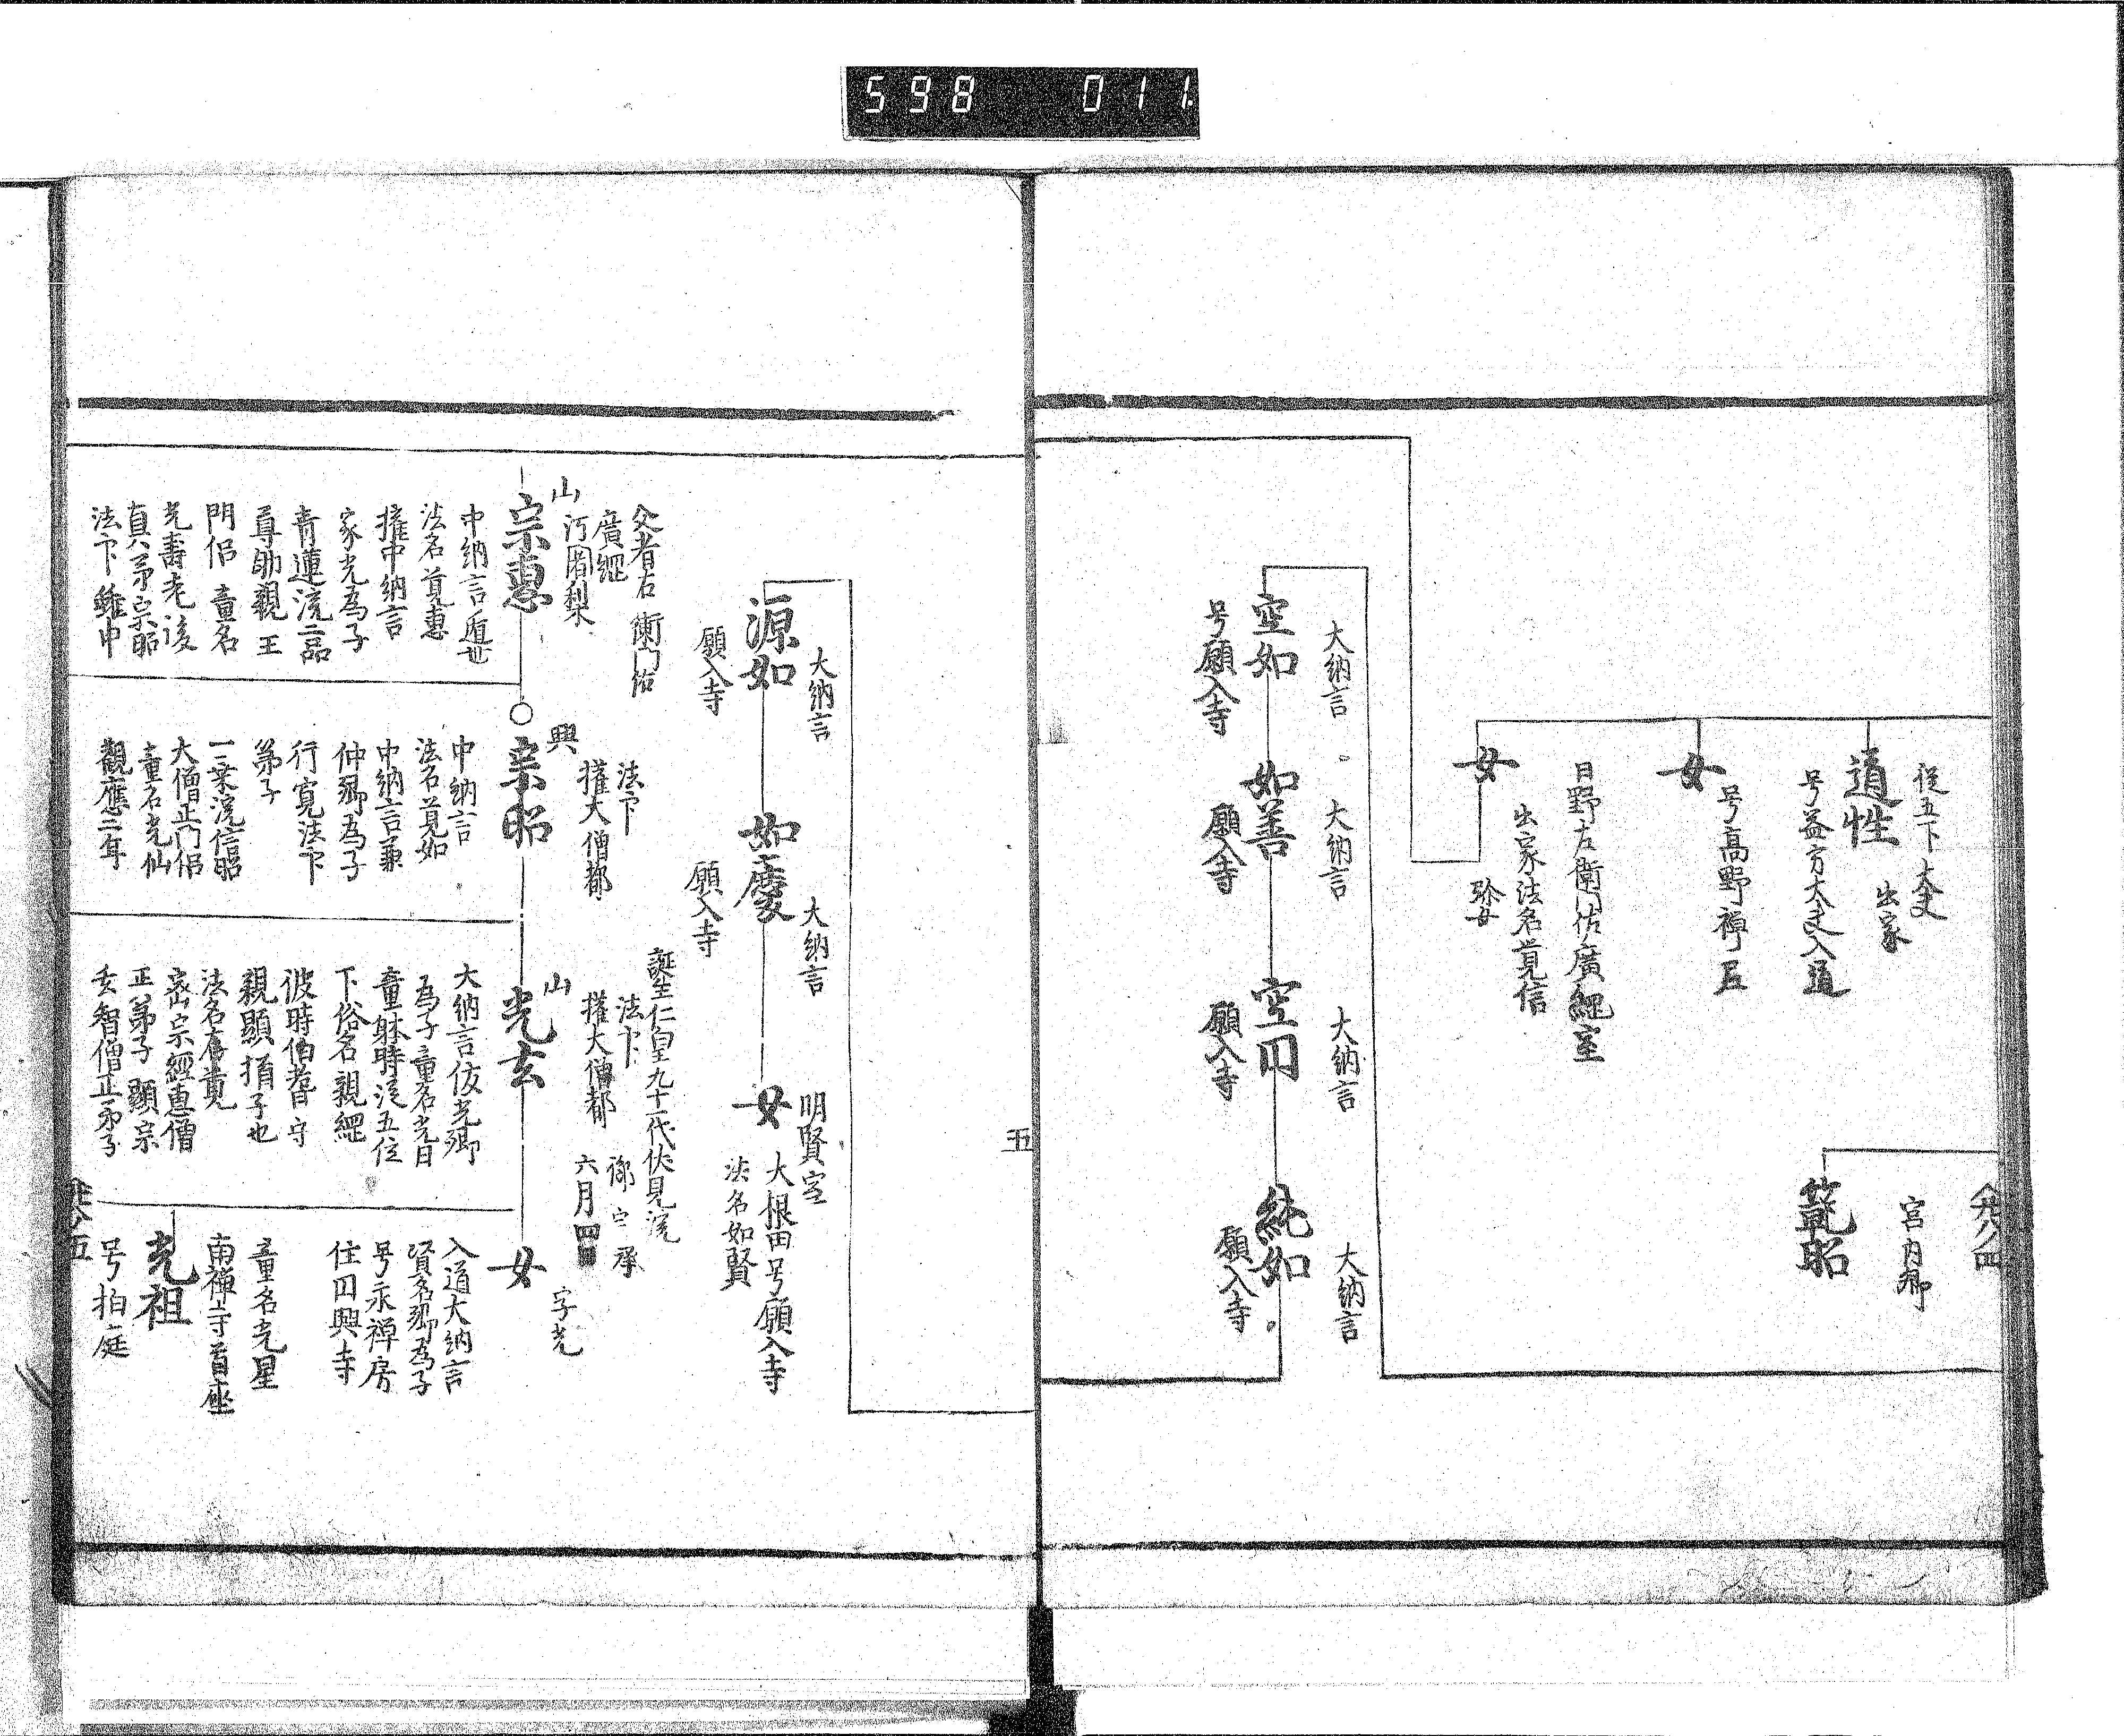 598 011
従五下 大夫
道性
出家
号益方大夫入道
女
号高野禅尼
日野左衛門佐廣綱室
女
出家法名覚信
弥女
宮内卿
範昭
大納言
空如
号願入寺
大納言
如善
願入寺
大納言
空円
願入寺
大納言
純如
願入寺
五
大納言
源如
願入寺
大納言
如慶
願入寺
明賢室
女
大根田号願入寺
法名如賢
父者右衛門佐
廣綱
山
阿闍梨
宗惠
中納言遁世
法名覚惠
權中納言
家光為子
青蓮院二品
尊助親王
門侶 童名
光壽老後
真弟宗昭
法下雖中
興
法下
權大僧都
宗昭
中納言
法名覚如
中納言兼
仲卿為子
行寛法下
弟子
一乗院信昭
大僧正門侶
童名光仙
觀應二年
誕生仁皇九十一代伏見院
六月四
山
法下
權大僧都
光玄
大納言俊光卿
為子童名光日
童躰時従五位
下俗名親綱
彼時伯耆守
親顕猶子也
法名存覚
宗經惠僧
正弟子 顕宗
智僧正弟子
女
字光
入道大納言
賢名卿為子
号永禅房
住円興寺
童名光星
南禅寺首座
光祖
号柏庭